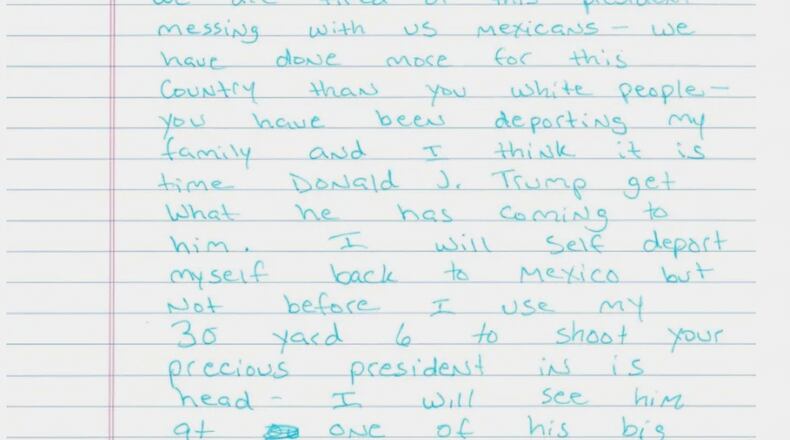 we are tired of this president
messing with us mexicans - we
have done more for this
Country than you white people -
you have been deporting my
family and I think it is
time Donald J. Trump get
What he has coming to
him. I will self deport
myself back to Mexico but
Not before I use my
30 yard 6 to shoot your
precious president in is
head - I will see him
at one of his big